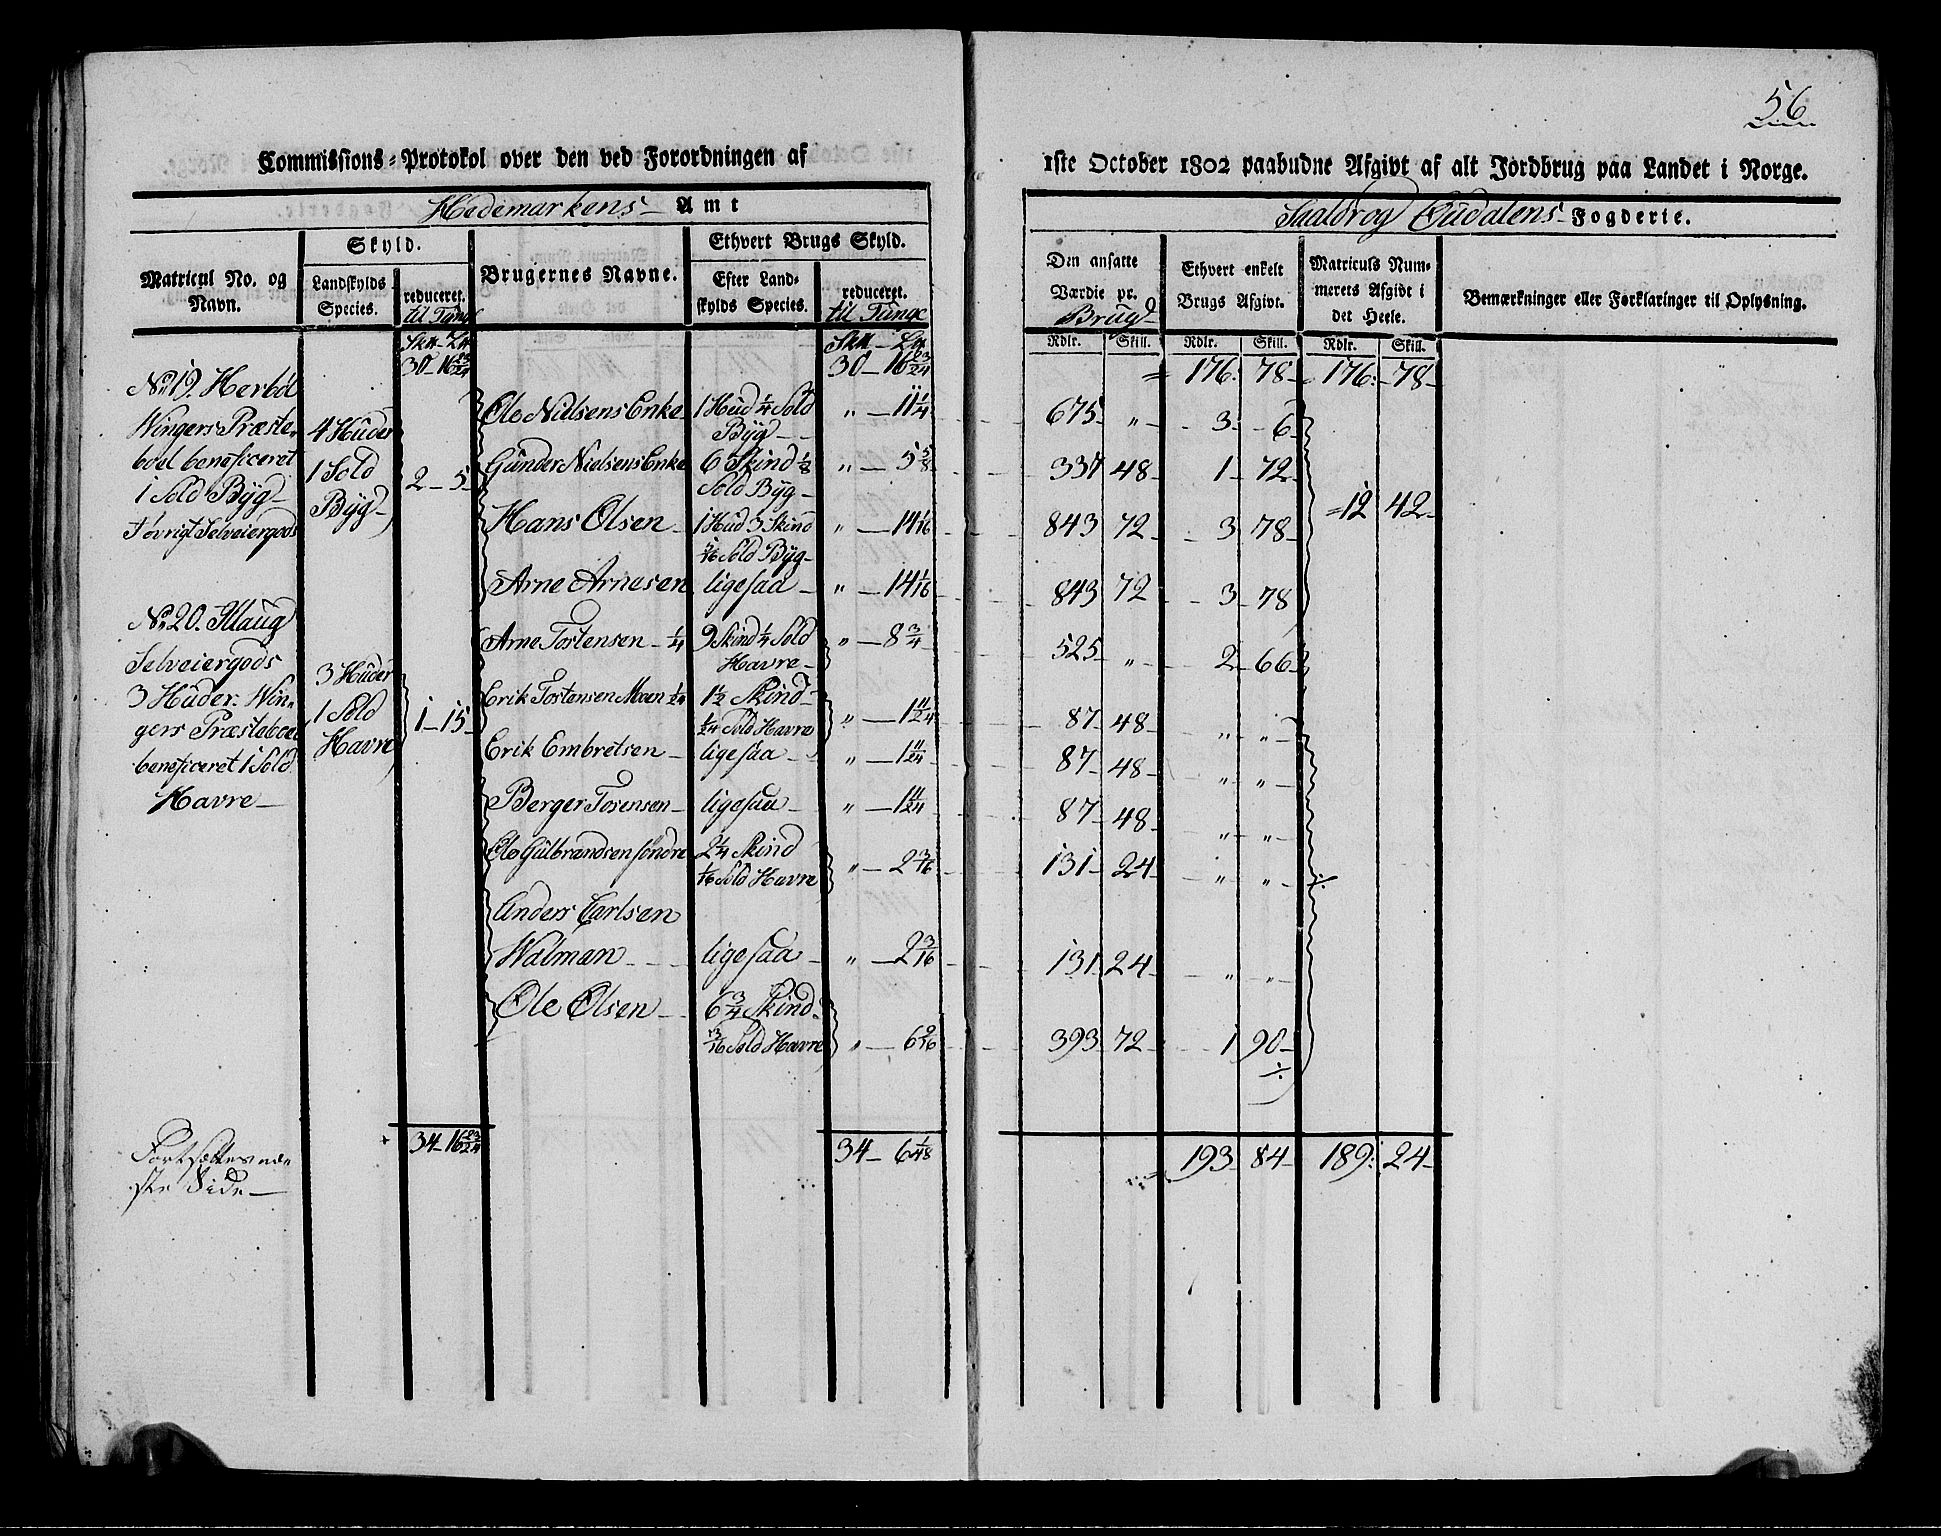 56
Commissions-Protokol over den ved Forordningen af
1ste October 1802 paabudne Afgivt af alt Jordbrug paa Landet i Norge.
Hedemarkens Amt
Fogderie.
Matricul No. og Navn.
Skyld.
Landskylds Species.
reduceret. til Tunge
Brugernes Navne.
Ethvert Brugs Skyld.
Efter Landskylds Species.
reduceret. til Tunge
Den ansatte Værdie pr. Brug
Ethvert enkelt Brugs Afgivt.
Matriculs Nummerets Afgivt i det Heele.
Bemærkninger eller Forklaringer til Oplysning.
Rdlr. Skill. Rdlr. Skill. Rdlr. Skill.
30 - 16 23/24
30 - 16 23/24
176: 78 - 176: - 78 -
No 19. Herböl
Wingers Præste-
boel beneficeret
1 Sold Byg -
i övrigt Selveiergods
4 Huder
1 Sold
Byg -
2 - 5 -
Ole Nielsens Enke 1 Hud 1/4 Sold Byg - " - 11 1/4 675 " - 3 - 6 -
Gunder Nielsens Enke 6 Skind 1/8 Sold Byg - " - 5 5/8 337 48 - 1 - 72 -
Hans Olsen 1 Hud 3 Skind 5/16 Sold Byg - " - 14 1/16 843 72 - 3 - 78 -
12 42 -
Arne Arnesen ligesaa - " - 14 1/16 843 72 - 3 - 78
No 20. Klaug
Selveiergods
3 Huder. Win-
gers Præsteboel
beneficeret 1 Sold
Havre -
3 Huder
1 Sold
Havre
1 - 15 -
Arne Tostensen - 1/4 9 Skind 1/4 Sold Havre - " - 8 3/4 525 - " - 2 - 66 -
Erik Tostensen Moen 1/24 1 1/2 Skind - 1/24 Sold Havre " - 1 11/24 87 - 48 - " "
Erik Embretsen - ligesaa - " - 1 11/24 87 - 48 - " "
Berger Torensen - ligesaa - " - 1 11/24 87 - 48 - " "
Ole Gulbrandsen söndre 2 1/4 Skind 1/16 Sold Havre " - 2 3/16 131 - 24 - " "
Anders Carlsen
Walman - ligesaa - " - 2 3/16 131 24 - " "
Ole Olsen - 6 3/4 Skind - 3/16 Sold Havre " - 6 9/16 393 72 - 1 90 -
Fortsættes næ-
ste Side -
34 - 16 23/24
34 - 6 1/48
193 - 84 - 189: 24 -